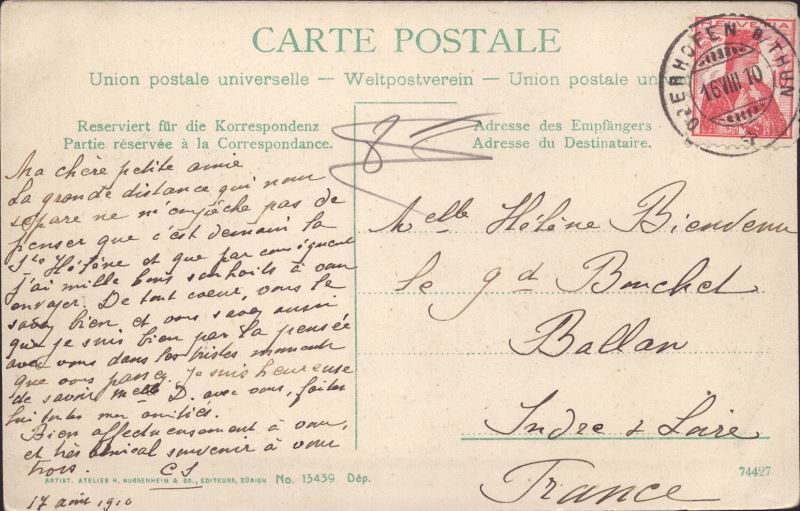 CARTE POSTALE
Union postale universelle — Weltpostverein — Union postale uni
HELVETIA
OBERHOFEN B/THUN
16 VIII 10
Reserviert für die Korrespondenz
Partie réservée à la Correspondance.
Adresse des Empfängers
Adresse du Destinataire.
Ma chère petite amie
La grande distance qui nous
separe ne m'empêche pas de
penser que c'est demain la
Ste Hélène et que par conséquent
j'ai mille bons souhaits à vous
envoyer. De tout coeur, vous le
savez bien et vous savez aussi
que je suis bien par la pensée
avec vous dans les tristes moments
que vous passez. Je suis heureuse
de savoir Melle D. avec vous, faites
lui toutes mes amitiés.
Bien affectueusement à vous,
et très amical souvenir à vous
trois. C S
17 août 1910
Melle Hélène Bienvenu
Le gd Bouchet
Ballan
Indre & Loire
France
ARTIST. ATELIER H. GUGGENHEIM & CO., EDITEURS, ZÜRICH No. 13439 Dép.
74427